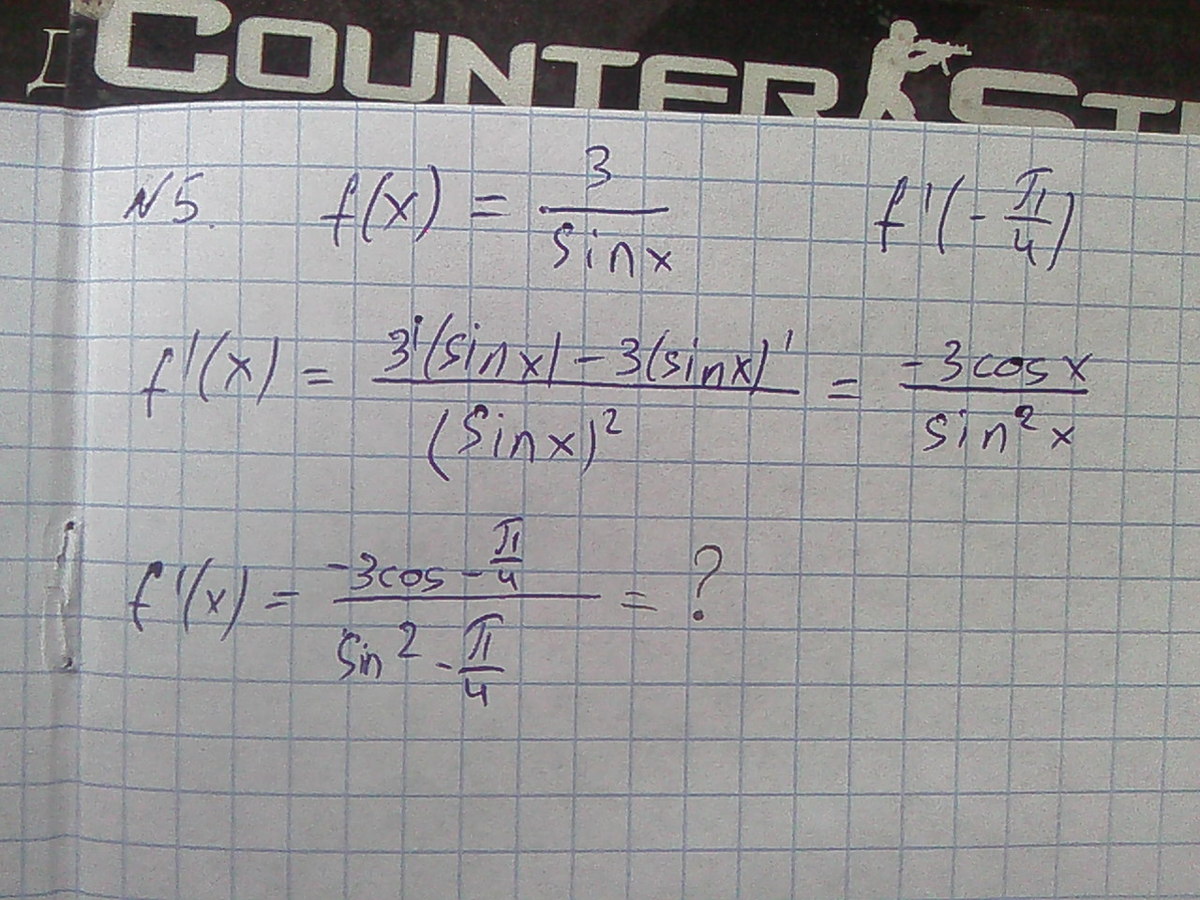 COUNTER STR
N5. f(x) = 3/sinx f'(-π/4)
f'(x) = 3'(sinx) - 3(sinx)'/(sinx)² = -3cosx/sin²x
f'(x) = -3cos-π/4/sin²-π/4 = ?